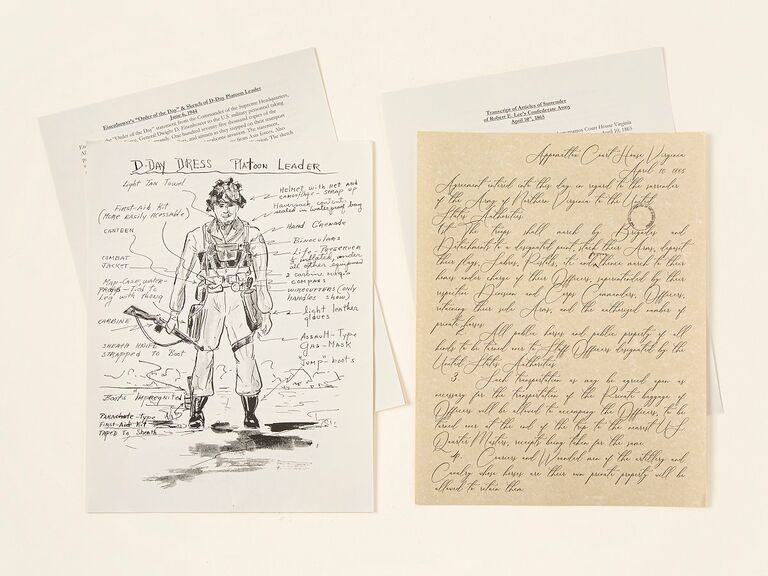 Eisenhower's "Order of the Day" & Sketch of D-Day Platoon Leader
June 6, 1944
"Order of the Day" statement from the Commander of the Supreme Headquarters,
General Dwight D. Eisenhower to the U.S. military personnel taking
One hundred seventy-five thousand copies of the
and airmen as they stepped on their transport
invasion. The statement,
D-DAY DRESS PLATOON LEADER
Light Tan Towel
First-Aid Kit
(More easily Accessable)
CANTEEN
COMBAT
JACKET
Map-Case, water-
proof - Tied to
Leg with thong
CARBINE
SHEATH KNIFE
STRAPPED TO BOOT
Boots Impregnited
Parachute-Type
First-Aid Kit
TAPED To Sheath
Helmet with net and
camouflage - strap up
Haversack content
sealed in waterproof bag
Hand Grenade
Binoculars
Life-Preserver
inflated, under
all other equipment
2 carbine mags
compass
wirecutters (only
handles show)
light leather
gloves
Assault-Type
Gas-Mask
"Jump"-boots
Transcript of Articles of Surrender
of Robert E. Lee's Confederate Army
April 10th, 1865
Court House Virginia
April 10, 1865
Appomattox Court House Virginia
April 10 1865
Agreement intered into this day in regard to the surrender
of the Army of Northern Virginia to the United
States Authorities.
1st The troops shall march by Brigades and
Detachments to a designated point, stack their Arms, deposit
their flags, Sabres, Pistols, etc and thence march to their
homes under charge of their Officers, superintended by their
respective Division and Corps Commanders, Officers,
retaining their side Arms, and the authorized number of
private horses.
2. All public horses and public property of all
kinds to be turned over to Staff Officers designated by the
United States Authorities.
3. Such transportation as may be agreed upon as
necessary for the transportation of the Private baggage of
Officers will be allowed to accompany the Officers, to be
turned over at the end of the trip to the nearest U.S.
Quarter Masters, receipts being taken for the same.
4. Couriers and Wounded men of the artillery and
Cavalry whose horses are their own private property will be
allowed to retain them.